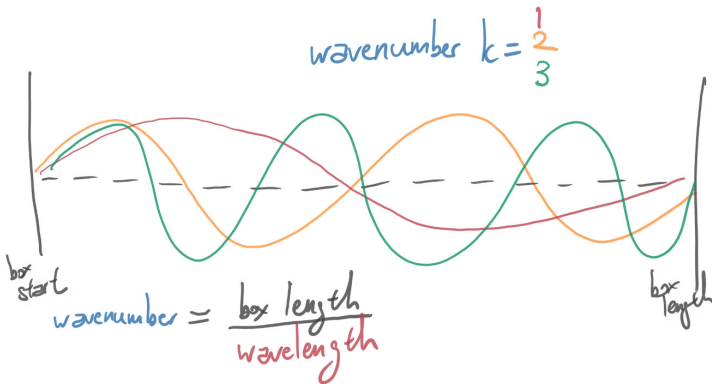 wavenumber k = 1
2
3
box
start
box
length
wavenumber = box length
wavelength